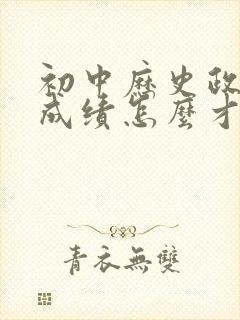 初中歷史政
成绩怎麼才
青衣無雙